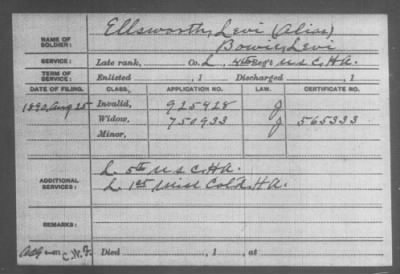 NAME OF SOLDIER: Ellsworth, Levi (Alias)
Bowie, Levi
SERVICE: Late rank, Co. L, Reg't U S C, HA.
TERM OF SERVICE: Enlisted , 1 Discharged , 1
DATE OF FILING. CLASS. APPLICATION NO. LAW. CERTIFICATE NO.
1890, Aug 25 Invalid, 925428 J
Widow, 750933 J 565333
Minor,
ADDITIONAL SERVICES: L. 5th U S C. HA.
L. 1st Miss Cold. HA.
REMARKS:
Died , 1 , at